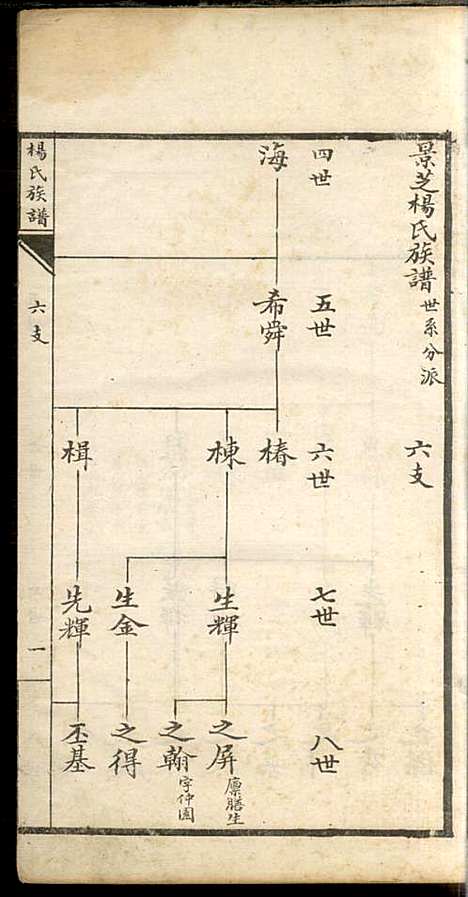 景芝楊氏族譜 世系分派 六支
四世 五世 六世 七世 八世
海
希舜
椿
棟
楫
生輝
生金
先輝
之屏 廩膳生
之翰 字仲圄
之得
丕基
楊氏族譜 六支 一